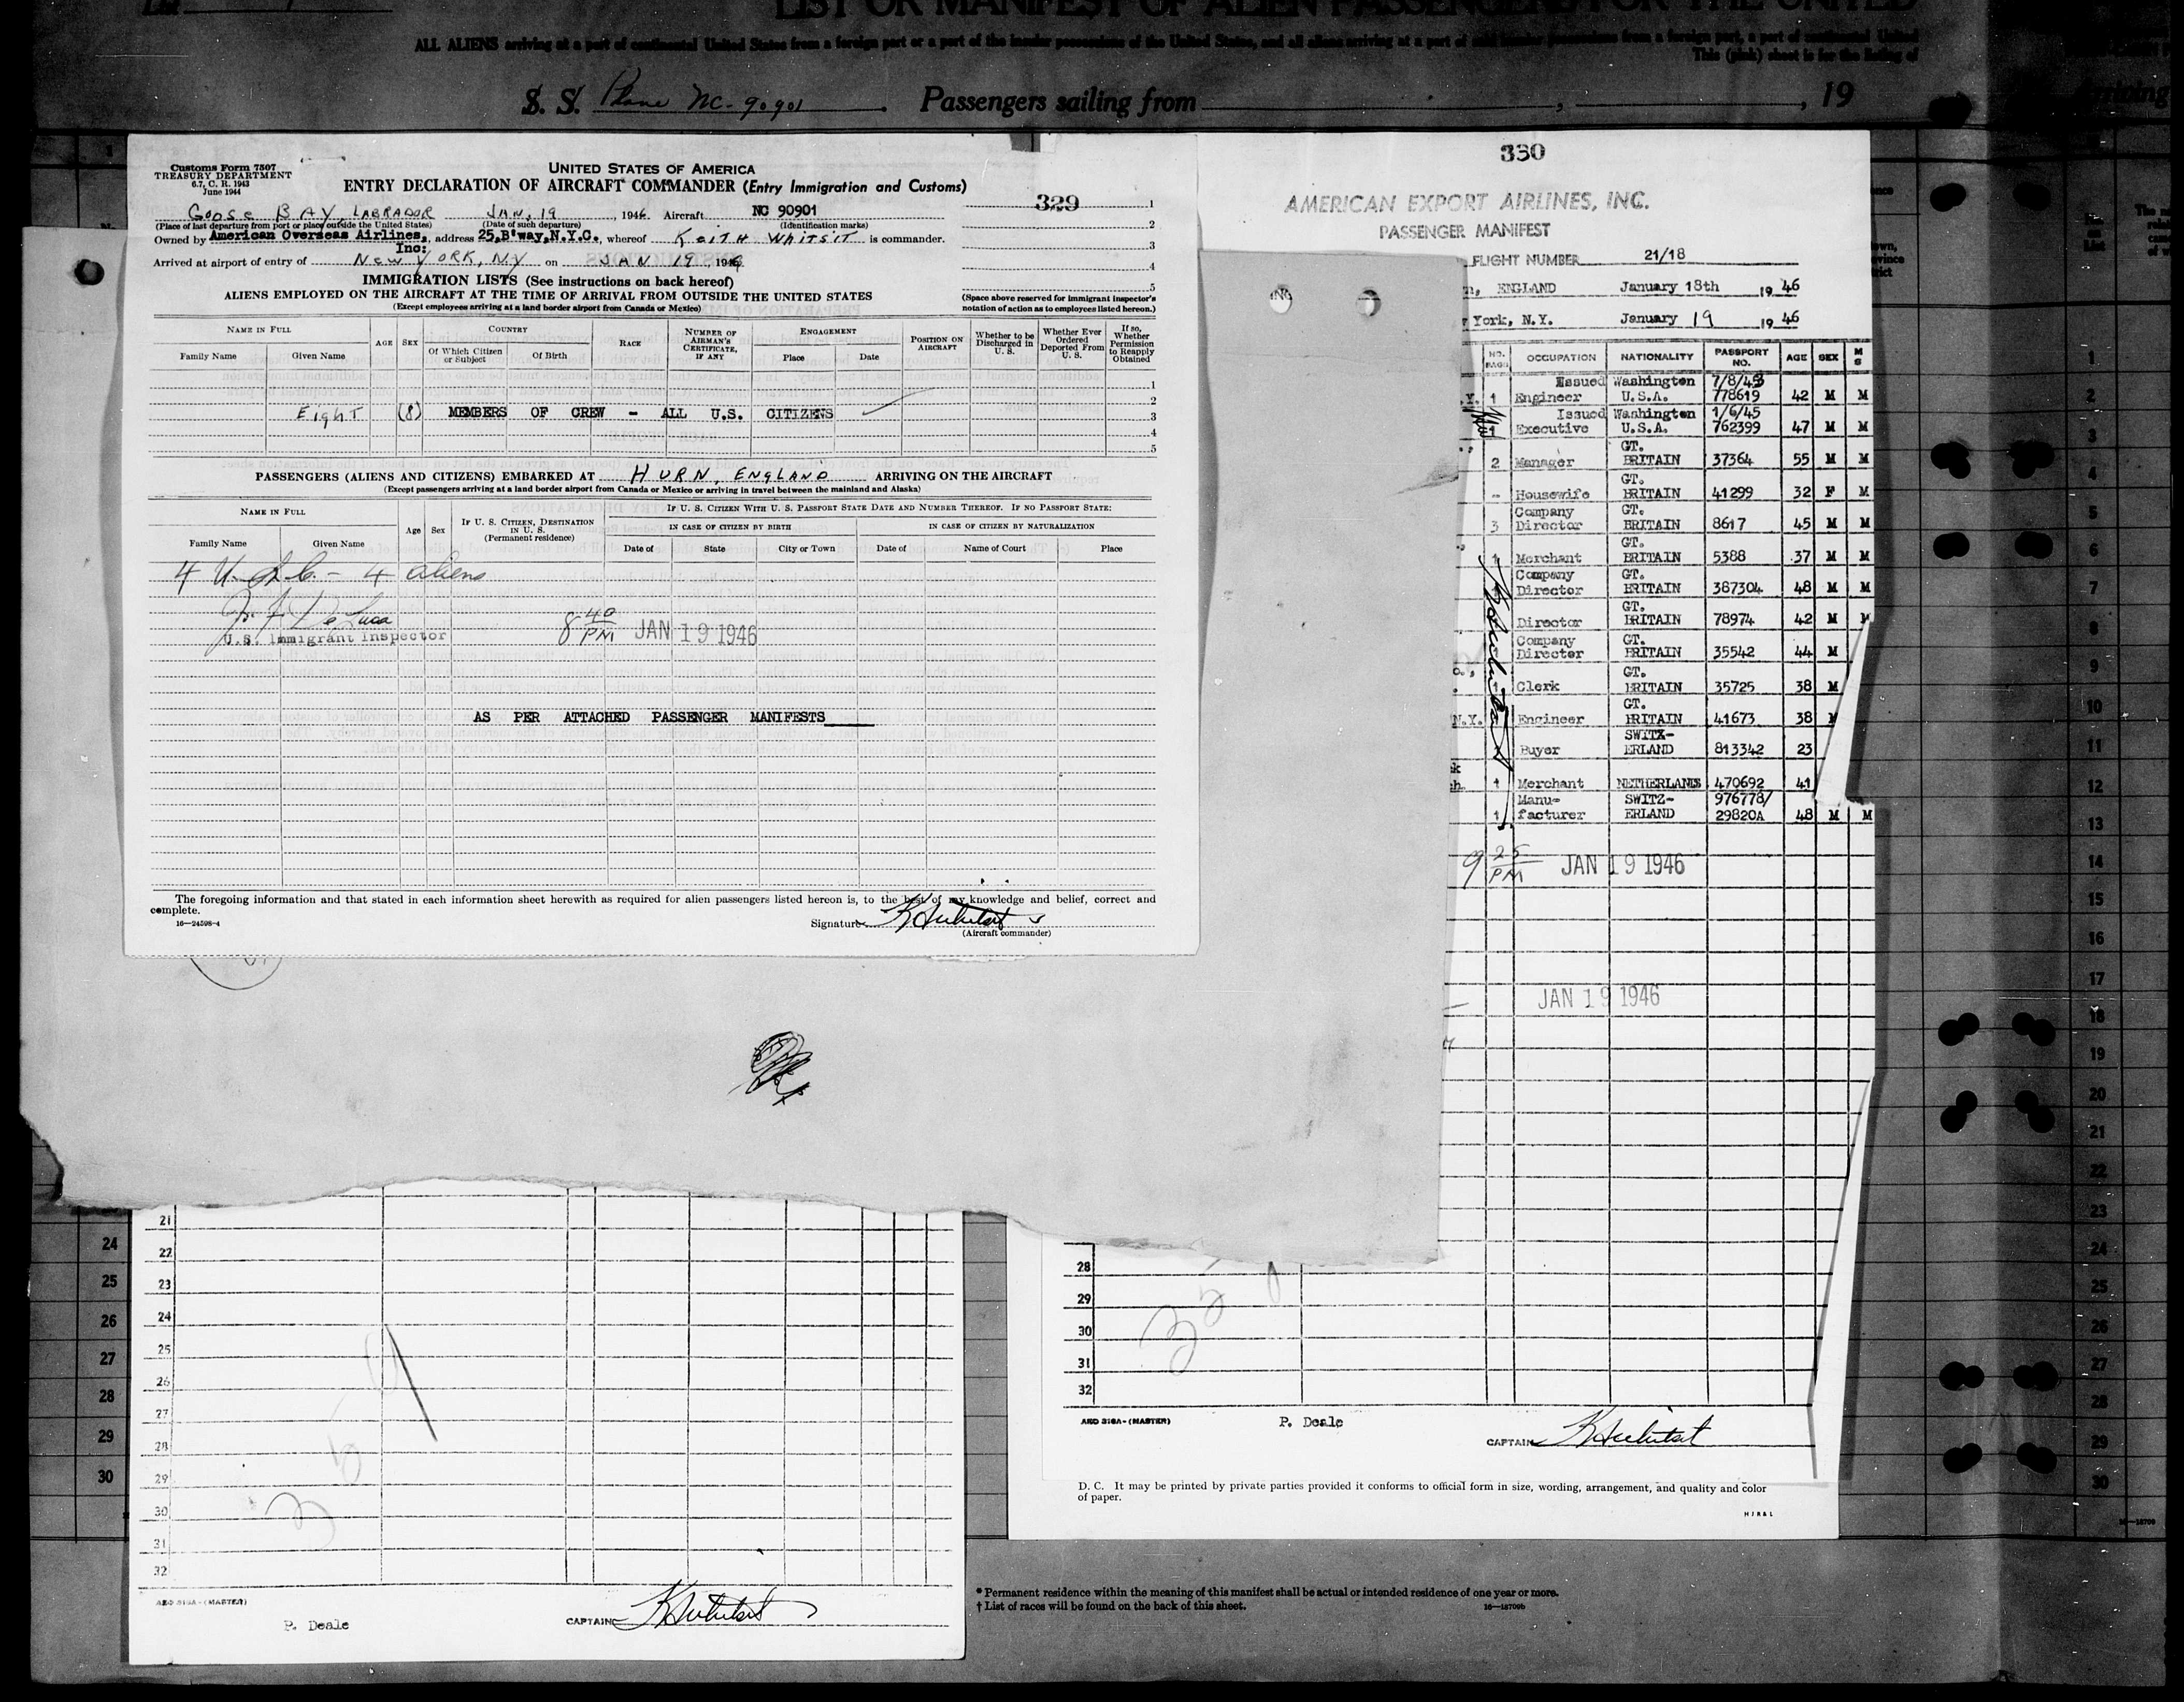 LIST OR MANIFEST OF ALIEN PASSENGERS FOR THE UNITED
ALL ALIENS arriving at a port of continental United States from a foreign port or a port of the insular possessions of the United States, and all aliens arriving at a port of said insular possessions from a foreign port, a port of continental United
This (pink) sheet is for the listing of
S. S. Plane NC-90901 Passengers sailing from , , 19
Arriving
Customs Form 7507
TREASURY DEPARTMENT
6.7, C. R. 1943
June 1944
UNITED STATES OF AMERICA
ENTRY DECLARATION OF AIRCRAFT COMMANDER (Entry Immigration and Customs)
329
GOOSE BAY, LABRADOR JAN. 19, 1946 Aircraft NC 90901
(Place of last departure from port or place outside the United States) (Date of such departure) (Identification marks)
Owned by American Overseas Airlines, Inc: address 25,B'way,N.Y.C., whereof KEITH WHITSIT is commander.
Arrived at airport of entry of NEW YORK, NY on JAN 19, 1946
1
2
3
4
5
IMMIGRATION LISTS (See instructions on back hereof)
ALIENS EMPLOYED ON THE AIRCRAFT AT THE TIME OF ARRIVAL FROM OUTSIDE THE UNITED STATES
(Except employees arriving at a land border airport from Canada or Mexico)
(Space above reserved for immigrant inspector's
notation of action as to employees listed hereon.)
NAME IN FULL
Family Name Given Name
AGE SEX
COUNTRY
Of Which Citizen or Subject Of Birth
RACE
NUMBER OF AIRMAN'S CERTIFICATE, IF ANY
ENGAGEMENT
Place Date
POSITION ON AIRCRAFT
Whether to be Discharged in U. S.
Whether Ever Ordered Deported From U. S.
If so, Whether Permission to Reapply Obtained
1
2
EIGHT (8) MEMBERS OF CREW - ALL U.S. CITIZENS 3
4
5
PASSENGERS (ALIENS AND CITIZENS) EMBARKED AT HURN, ENGLAND ARRIVING ON THE AIRCRAFT
(Except passengers arriving at a land border airport from Canada or Mexico or arriving in travel between the mainland and Alaska)
NAME IN FULL
Family Name Given Name
Age Sex
IF U. S. CITIZEN, DESTINATION IN U. S.
(Permanent residence)
IF U. S. CITIZEN WITH U. S. PASSPORT STATE DATE AND NUMBER THEREOF. IF NO PASSPORT STATE:
IN CASE OF CITIZEN BY BIRTH IN CASE OF CITIZEN BY NATURALIZATION
Date of State City or Town Date of Name of Court Place
4 U.S.C. - 4 aliens
J. F. De Luca
U.S. Immigrant Inspector
8 40 PM JAN 19 1946
AS PER ATTACHED PASSENGER MANIFESTS
The foregoing information and that stated in each information sheet herewith as required for alien passengers listed hereon is, to the best of my knowledge and belief, correct and
complete.
16—24598-4
Signature KWhitsit
(Aircraft commander)
330
AMERICAN EXPORT AIRLINES, INC.
PASSENGER MANIFEST
FLIGHT NUMBER 21/18
ENGLAND January 18th 19 46
York, N.Y. January 19 19 46
NO. OCCUPATION NATIONALITY PASSPORT NO. AGE SEX M S
Issued Washington 7/8/43
1 Engineer U.S.A. 778619 42 M M
Issued Washington 1/6/45
1 Executive U.S.A. 762399 47 M M
2 Manager GT. BRITAIN 37364 55 M M
- Housewife GT. BRITAIN 41299 32 F M
3 Company Director GT. BRITAIN 8617 45 M M
1 Merchant GT. BRITAIN 5388 37 M M
Company Director GT. BRITAIN 387304 48 M M
Director GT. BRITAIN 78974 42 M M
Company Director GT. BRITAIN 35542 44 M
1 Clerk GT. BRITAIN 35725 38 M
N.Y. Engineer GT. BRITAIN 41673 38
Buyer SWITZ-ERLAND 813342 23
1 Merchant NETHERLANDS 470692 41
1 Manu-facturer SWITZ-ERLAND 976778/29820A 48 M M
9 25 PM JAN 19 1946
JAN 19 1946
28
29
30
31
32
AEO 318A-(MASTER) P. Deale
CAPTAIN KWhitsit
D. C. It may be printed by private parties provided it conforms to official form in size, wording, arrangement, and quality and color
of paper.
21
22
23
24
25
26
27
28
29
30
31
32
AEO 318A-(MASTER)
P. Deale
CAPTAIN KWhitsit
24
25
26
27
28
29
30
* Permanent residence within the meaning of this manifest shall be actual or intended residence of one year or more.
† List of races will be found on the back of this sheet.
16—18709b
1
2
3
4
5
6
7
8
9
10
11
12
13
14
15
16
17
18
19
20
21
22
23
24
25
26
27
28
29
30
16—18709